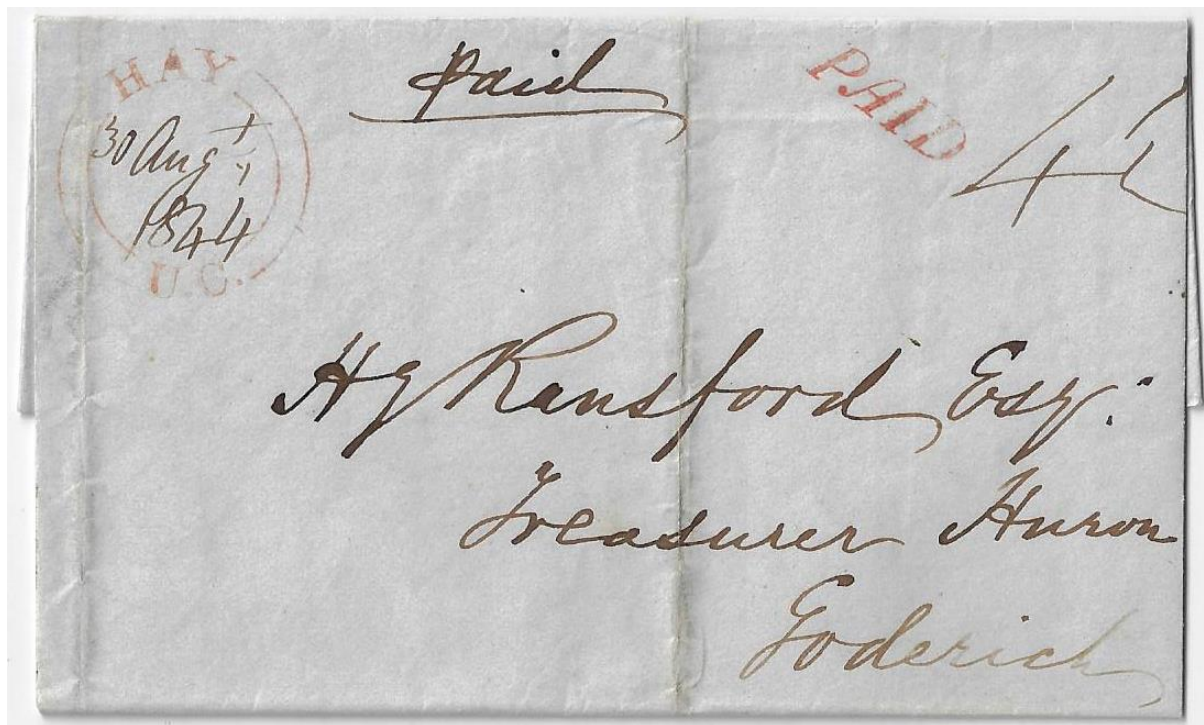 HAY
30 Augt,
1844
U.C.
Paid
PAID
4½
H G Ransford Esqr.
Treasurer Huron
Goderich